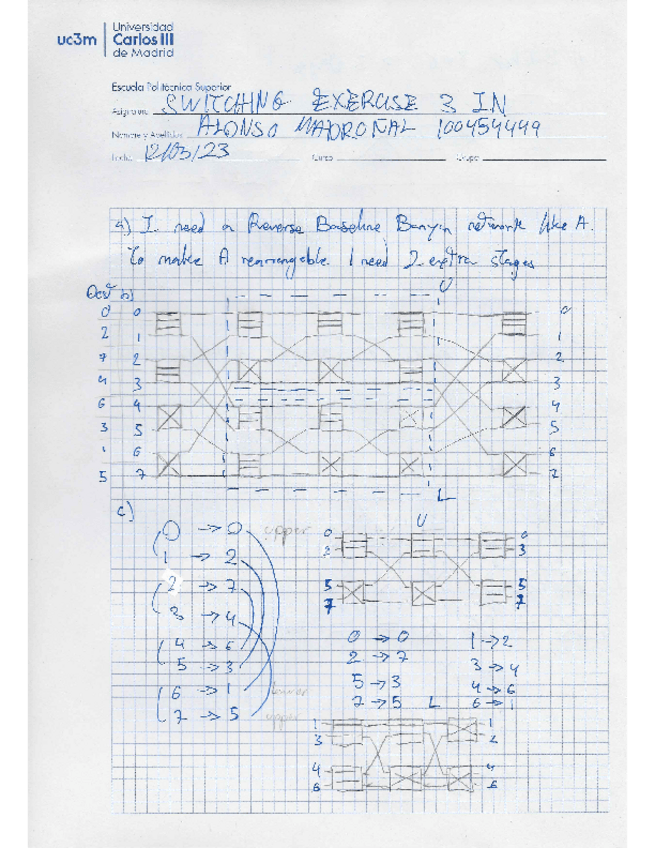 uc3m
Universidad
Carlos III
de Madrid
Escuela Politécnica Superior
Asignatura SWITCHING EXERCISE 3 IN
Nombre y Apellidos ALONSO MADROÑAL 100454449
Fecha 12/03/23 Curso Grupo
a) I need a Reverse Baseline Banyan network like A.
To make A rearrangeable I need 2 extra stages
U
Dest b)
0 0 0
2 1 1
7 2 2
4 3 3
6 4 4
3 5 5
1 6 6
5 7 7
L
c)
U
0 → 0 upper
1 → 2
2 → 7
3 → 4
4 → 6
5 → 3
6 → 1 lower
7 → 5 upper
0 0
2 3
5 5
7 7
0 → 0 1 → 2
2 → 7 3 → 4
5 → 3 4 → 6
7 → 5 6 → 1
L
1 1
3 2
4 4
6 6